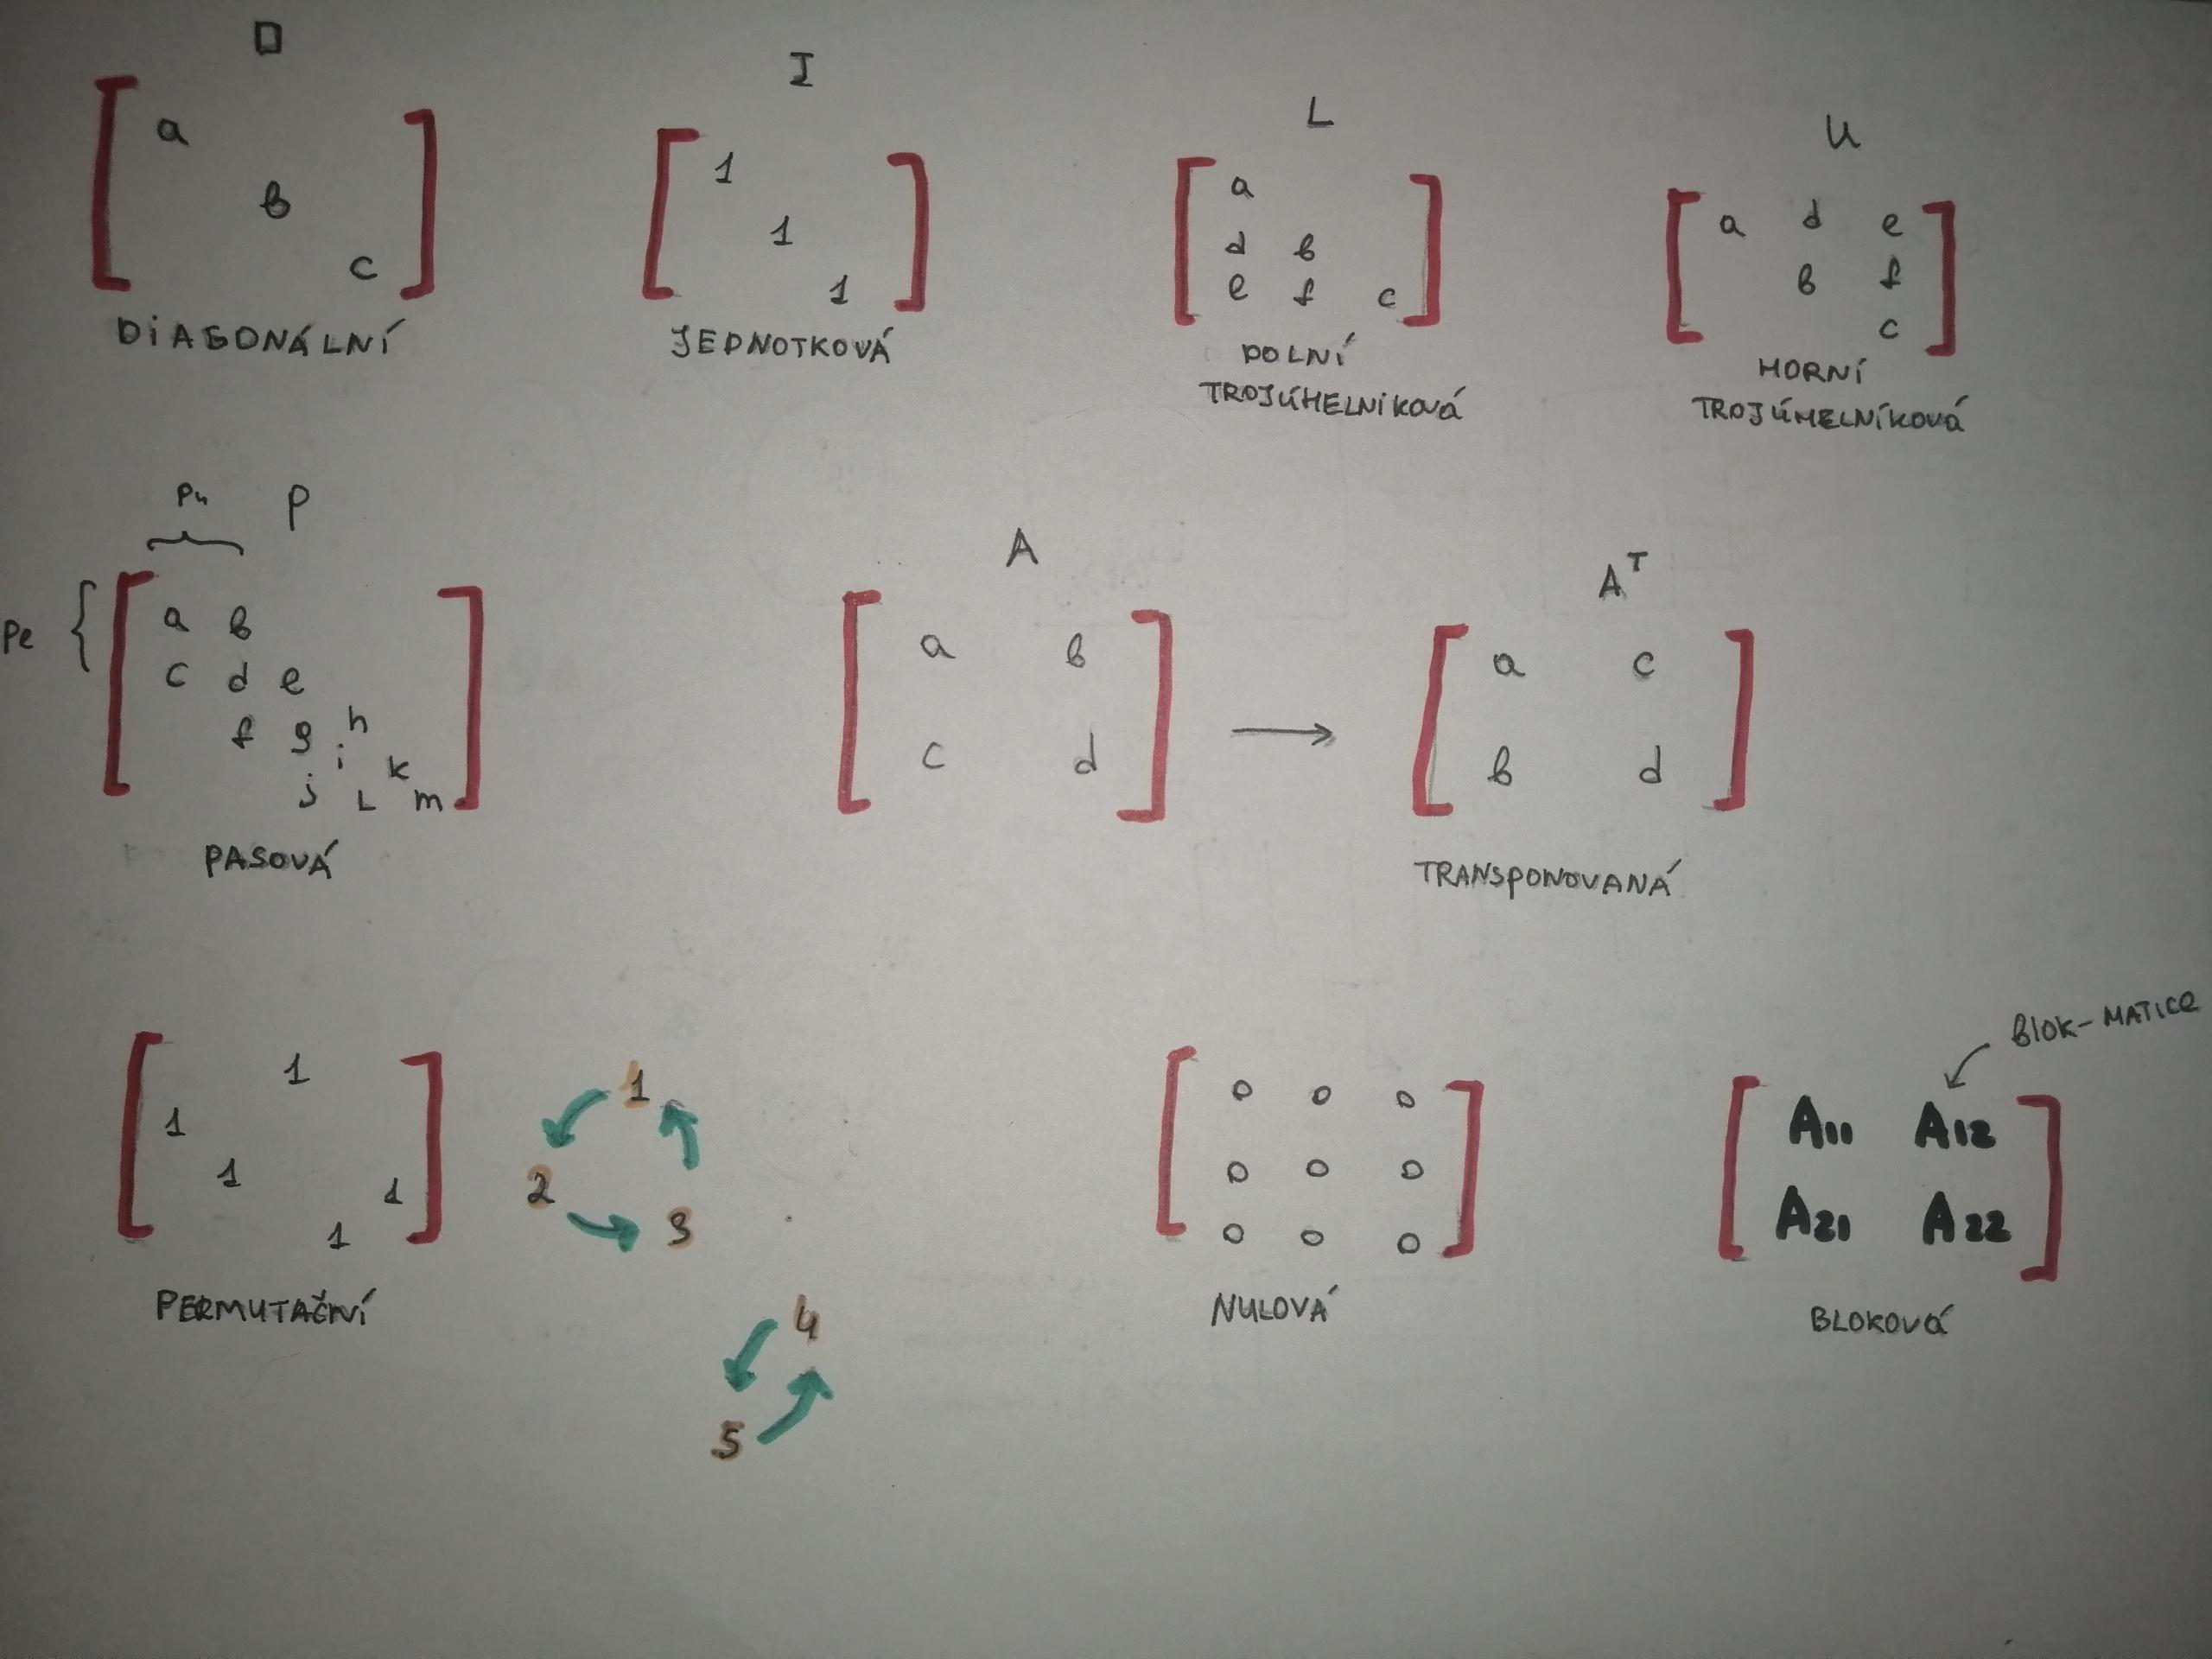 D
a
b
c
DIAGONÁLNÍ
I
1
1
1
JEDNOTKOVÁ
L
a
d b
e f c
DOLNÍ
TROJÚHELNIKOVÁ
U
a d e
b f
c
HORNÍ
TROJÚHELNÍKOVÁ
P
Pe
a b
c d e
f g h
i k
j L m
PASOVÁ
A
a b
c d
A^T
a c
b d
TRANSPONOVANÁ
1
1
1
1
1
PERMUTAČNÍ
1
2 3
4
5
0 0 0
0 0 0
0 0 0
NULOVÁ
BLOK-MATICE
A11 A12
A21 A22
BLOKOVÁ